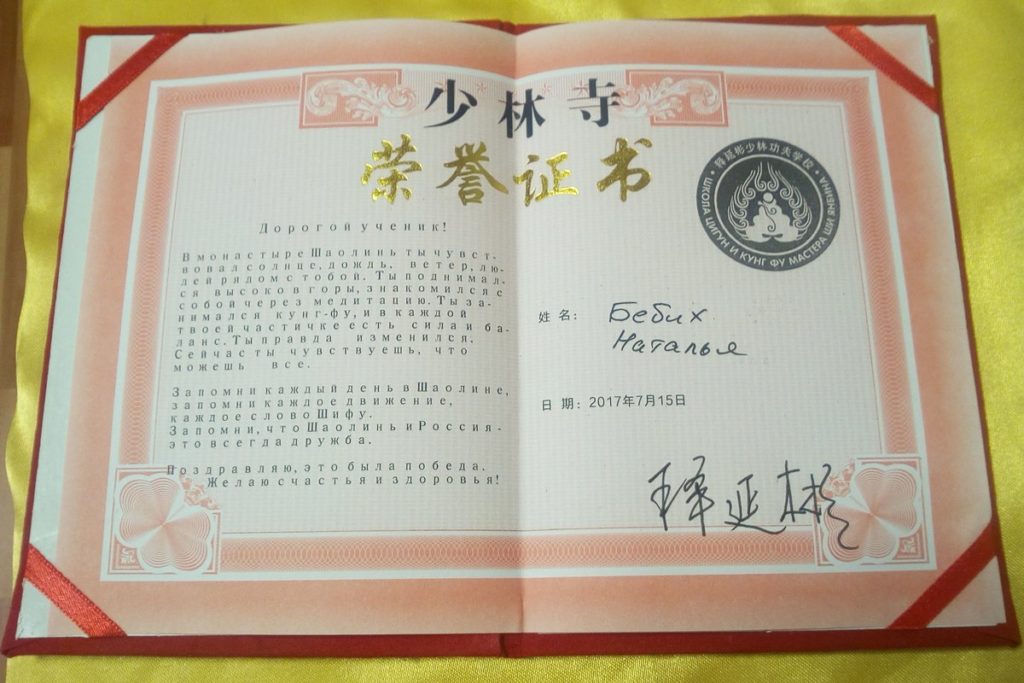 少林寺
荣誉证书
释延彬少林功夫学校
ШКОЛА ЦИГУН И КУНГ ФУ МАСТЕРА ШИ ЯНБИНА
Дорогой ученик!
В монастыре Шаолинь ты чувст-
вовал солнце, дождь, ветер, лю-
дей рядом с тобой. Ты поднимал-
ся высоко в горы, знакомился с
собой через медитацию. Ты за-
нимался кунг-фу, и в каждой
твоей частичке есть сила и ба-
ланс. Ты правда изменился.
Сейчас ты чувствуешь, что
можешь все.
Запомни каждый день в Шаолине,
запомни каждое движение,
каждое слово Шифу.
Запомни, что Шаолинь и Россия -
это всегда дружба.
Поздравляю, это была победа.
Желаю счастья и здоровья!
姓 名: Бебих
Наталья
日 期: 2017年7月15日
释延彬